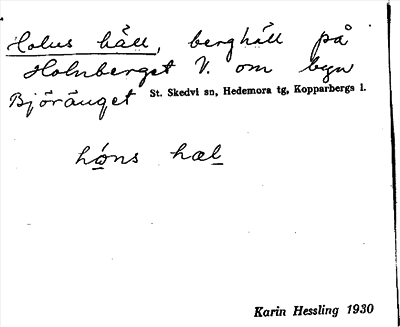 Holns häll, berghäll på
Holnberget V. om byn
Björänget St. Skedvi sn, Hedemora tg, Kopparbergs l.
hóns hæl
Karin Hessling 1930